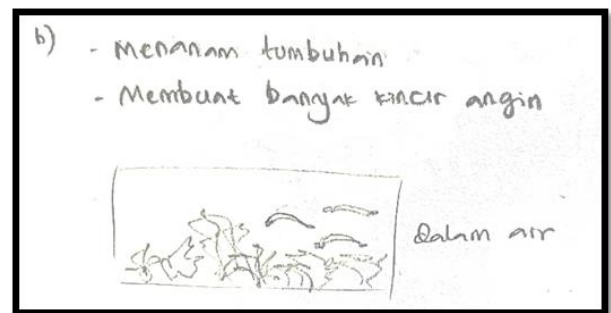 b) - Menanam tumbuhan
- Membuat banyak kincir angin
dalam air